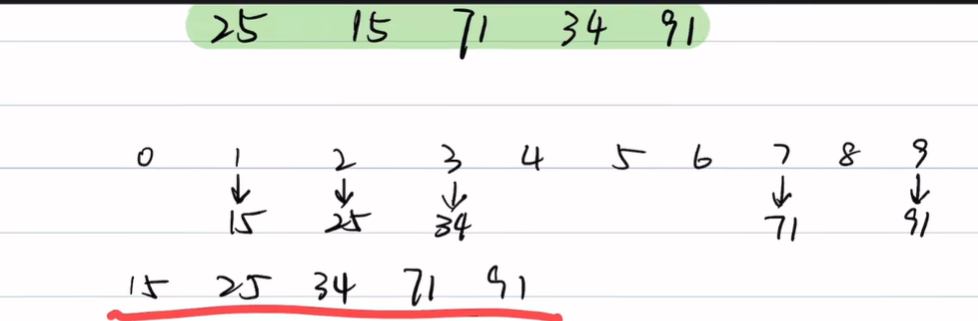 25 15 71 34 91
0 1 2 3 4 5 6 7 8 9
↓ ↓ ↓ ↓ ↓
15 25 34 71 91
15 25 34 71 91